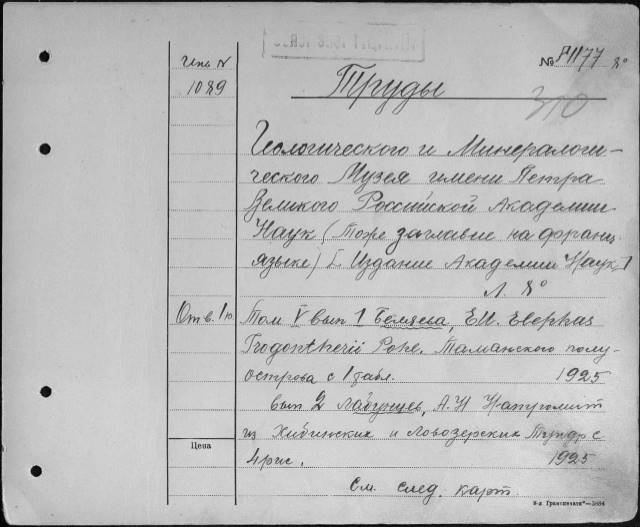 Инв N
1089
№ Р1177 8°
Труды
310
Геологического и Минералоги-
ческого Музея имени Петра
Великого Российской Академии
Наук (Тоже заглавие на франц.
языке) I. Издание Академии Наук 1
Л. 8°
От в. 1ю
Том V вып 1 Беляева, Е.И. Elephas
Trogontherii Pohl. Таманского полу-
острова с 1 табл. 1925
вып 2 Лабунцов, А.Н Натролит
из Хибинских и Ловозерских Тундр с
4 рис. 1925
Цена
См. след. карт.